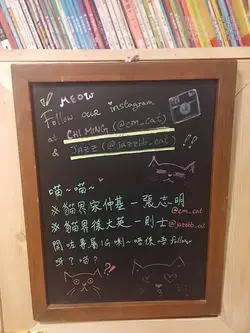 MEOW
Follow our instagram
at CHI MING (@cm_cat)
& JAZZ (@jazzbb_cat)
!!
喵~喵~
※貓界宋仲基—張志明
@cm_cat
※貓界後大英—爵士
@jazzbb_cat
開咗專屬IG喇~唔係唔follow
呀?喵?